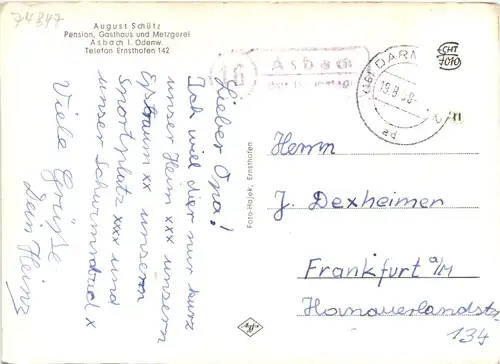 74847
August Schütz
Pension, Gasthaus und Metzgerei
Asbach i. Odenw.
Telefon Ernsthofen 142
Lieber Opa!
Ich will dier nur kurz
unser Heim xxx unsern
Eßraum xx unsern
Sportplatz xxx und
unser Schwimmbad x
Viele Grüße
Dein Heinz
Foto-Hajek, Ernsthofen
Agfa
16
Asbach
DARM
19.8.
ad
ECHT
7010
Herrn
J. Dexheimer
Frankfurt a/M
Hanauerlandstr.
134